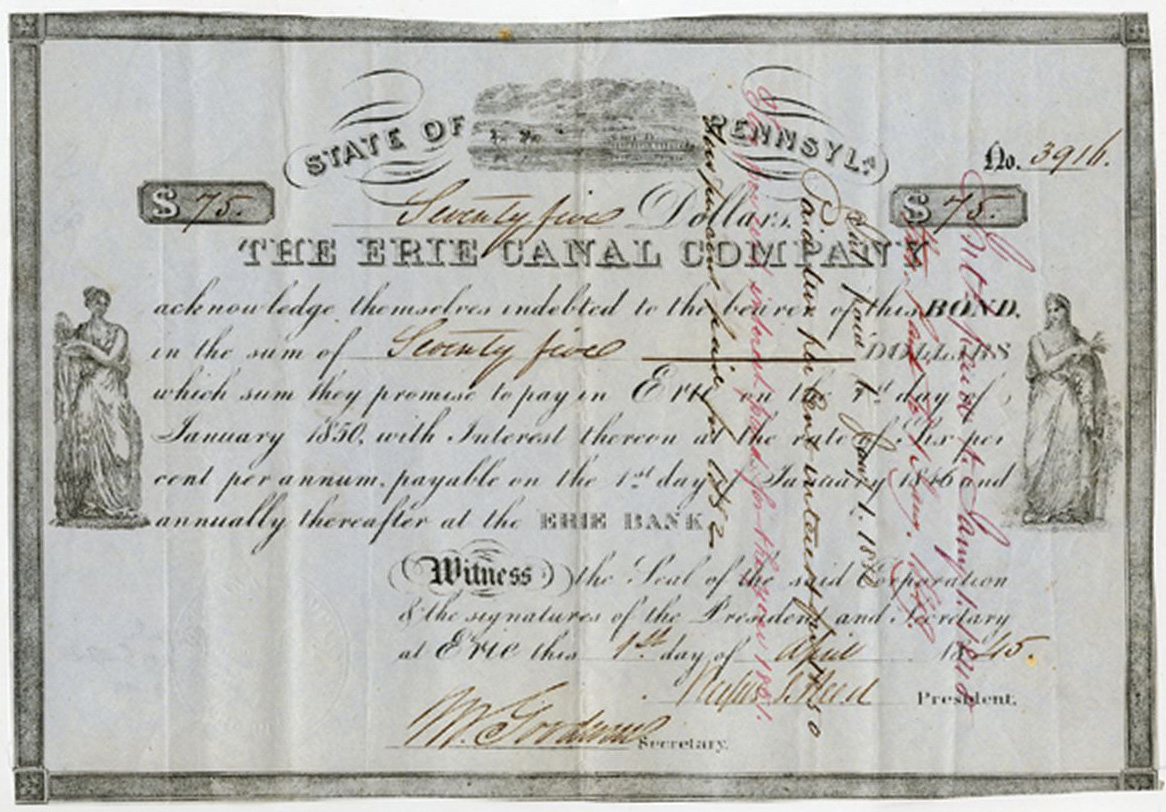 STATE OF PENNSYLA
No. 3916.
$ 75. $ 75.
Seventy five Dollars.
THE ERIE CANAL COMPANY
acknowledge themselves indebted to the bearer of this BOND.
in the sum of Seventy five DOLLARS
which sum they promise to pay in Erie on the 1st day of
January 1850, with Interest thereon at the rate of Six per
cent per annum, payable on the 1st day of January 1846 and
annually thereafter at the ERIE BANK
Witness the Seal of the said Corporation
& the signatures of the President and Secretary
at Erie this 1st day of April 1845.
Rufus S. Reed President.
Secretary.
Int. paid to Jany 1.
Int. paid to Jany 1. 18
interest paid for the year 1851.
paid for 1852